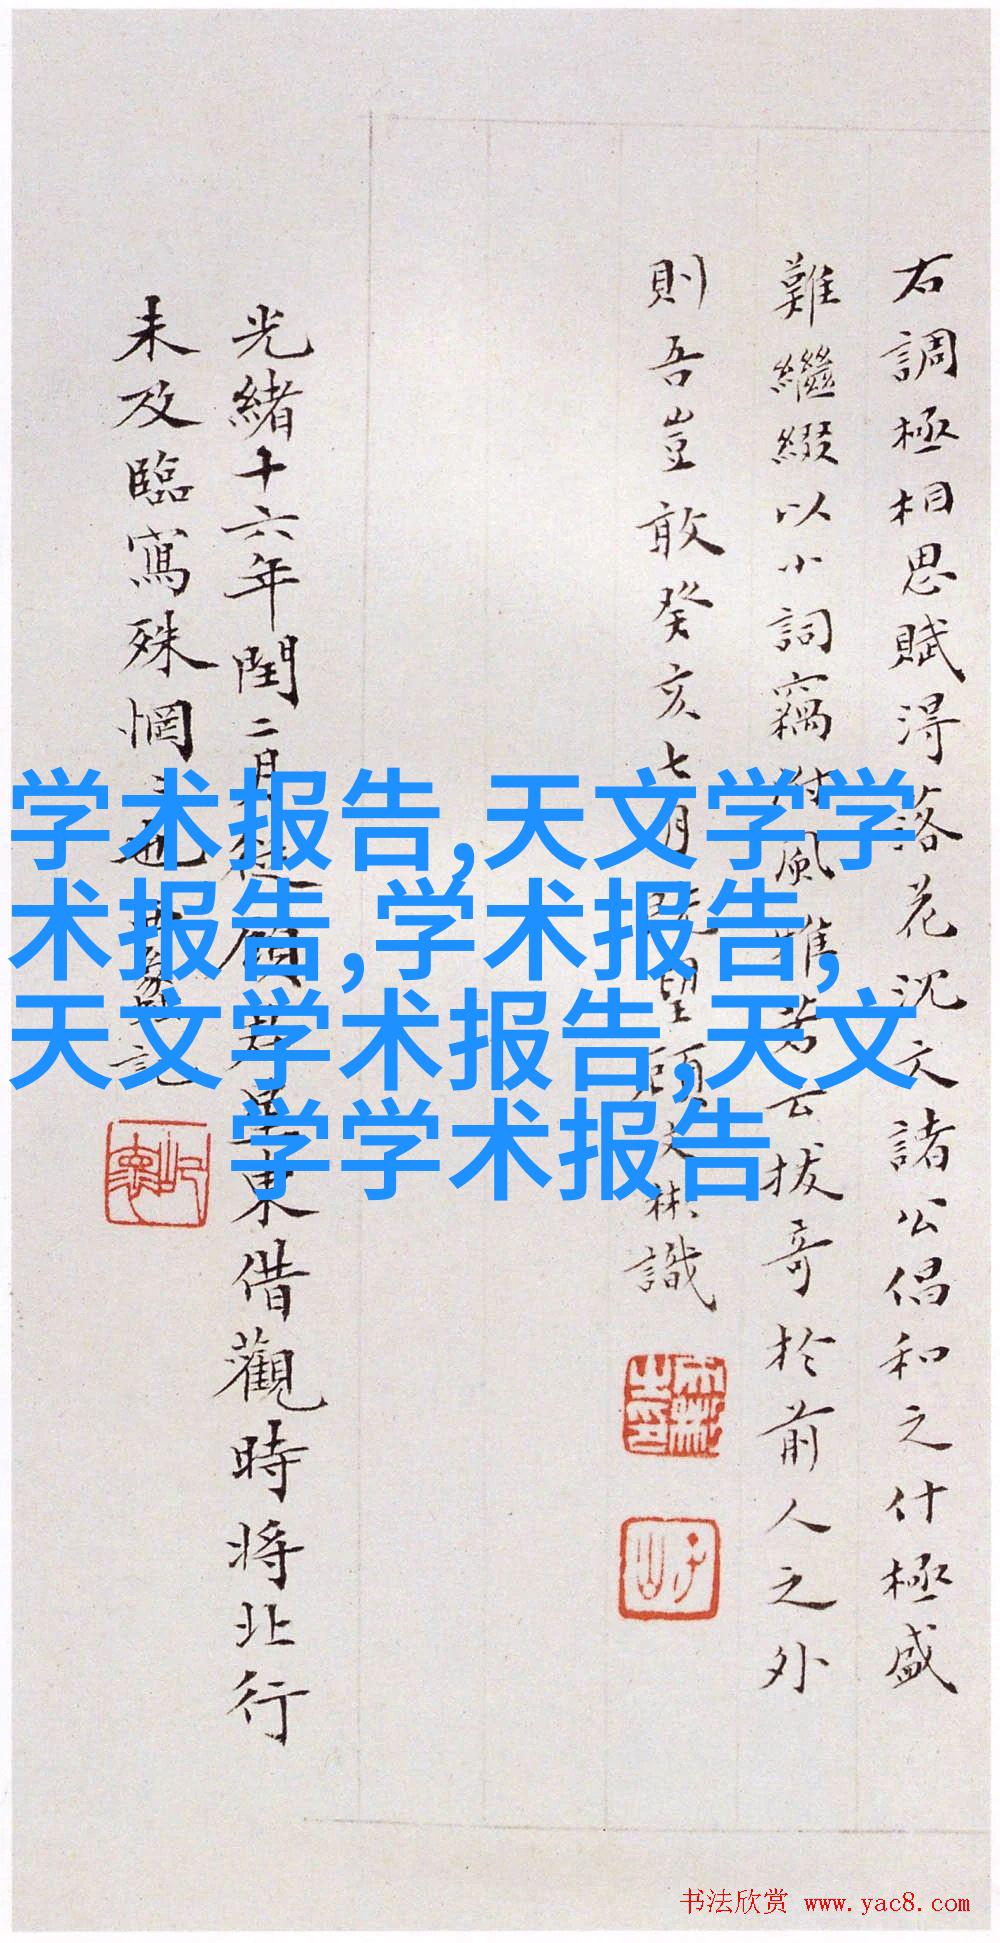 右調極相思賦得落花沈文諸公倡和之什極盛
難繼綴以小詞竊附風雅若云拔奇於前人之外
則吾豈敢癸亥七月既望顧文彬識
光緒十六年閏二月從顧君星東借觀時將北行
未及臨寫殊惘
也
記
学术报告,天文学学
术报告,学术报告,
天文学术报告,天文
学学术报告
书法欣赏 www.yac8.com